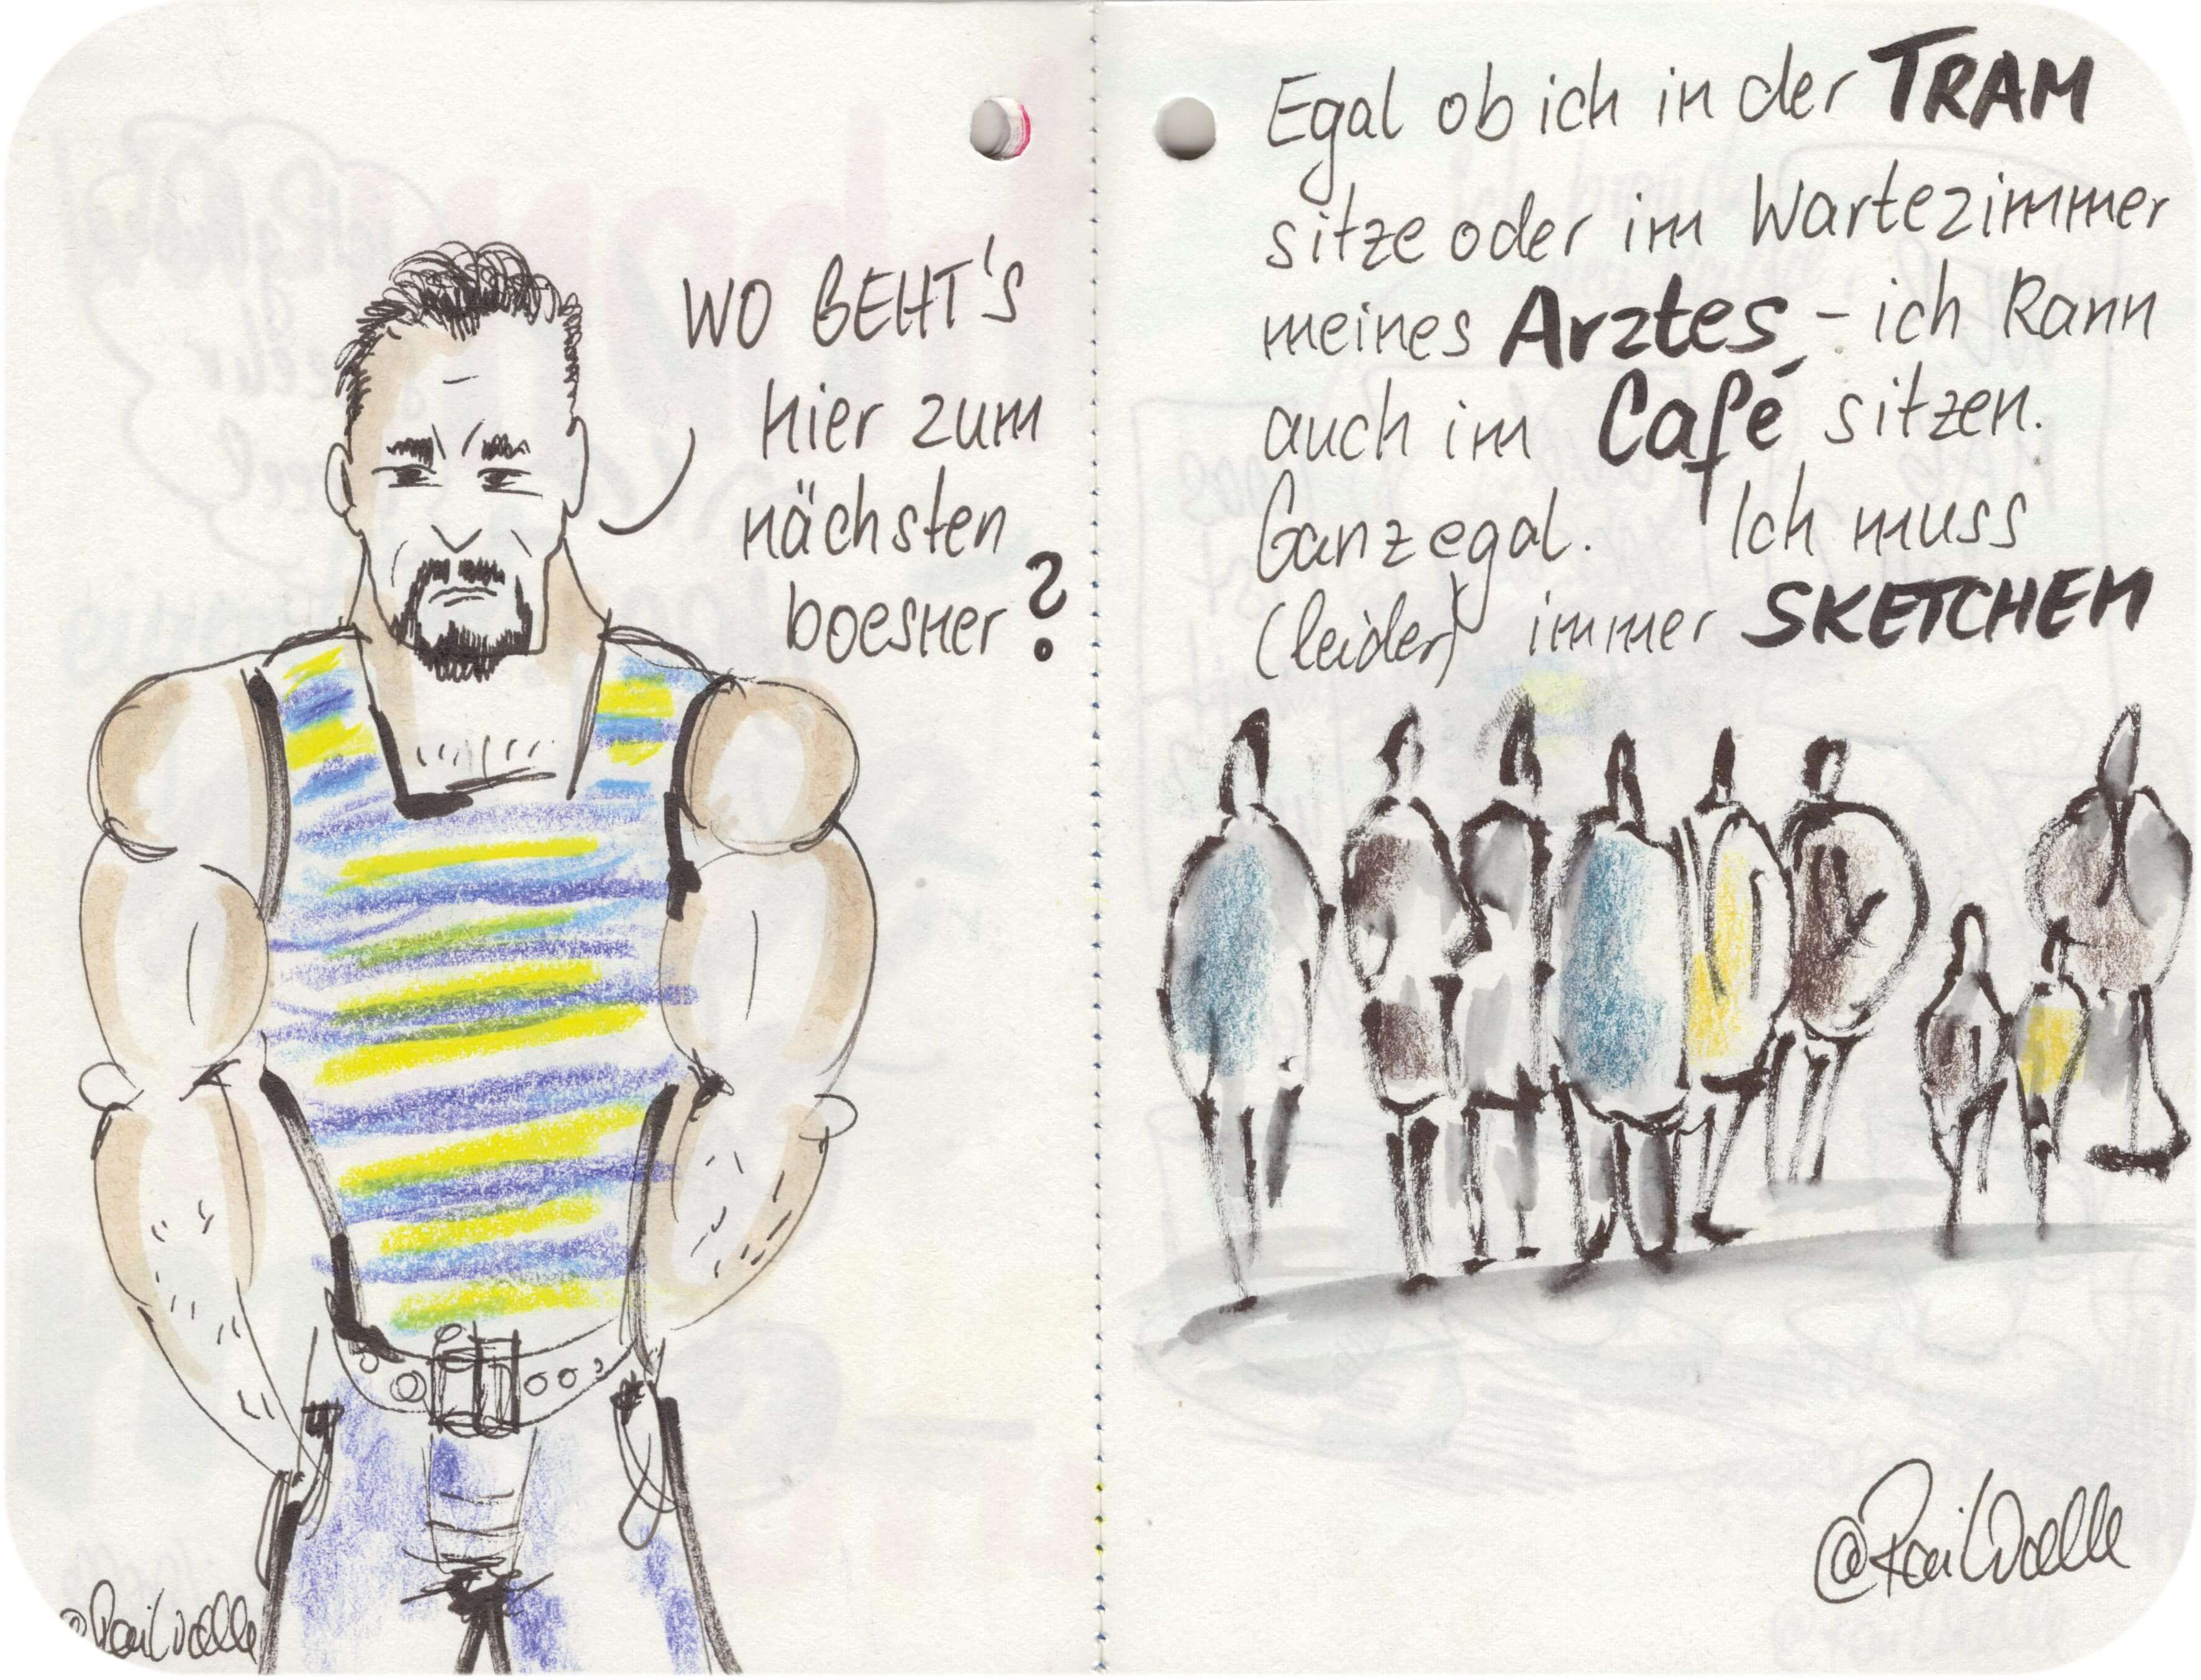 WO GEHT'S
hier zum
nächsten
boesner?
Egal ob ich in der TRAM
sitze oder im Wartezimmer
meines Arztes - ich kann
auch im Café sitzen.
Ganz egal. Ich muss
(leider) immer SKETCHEN